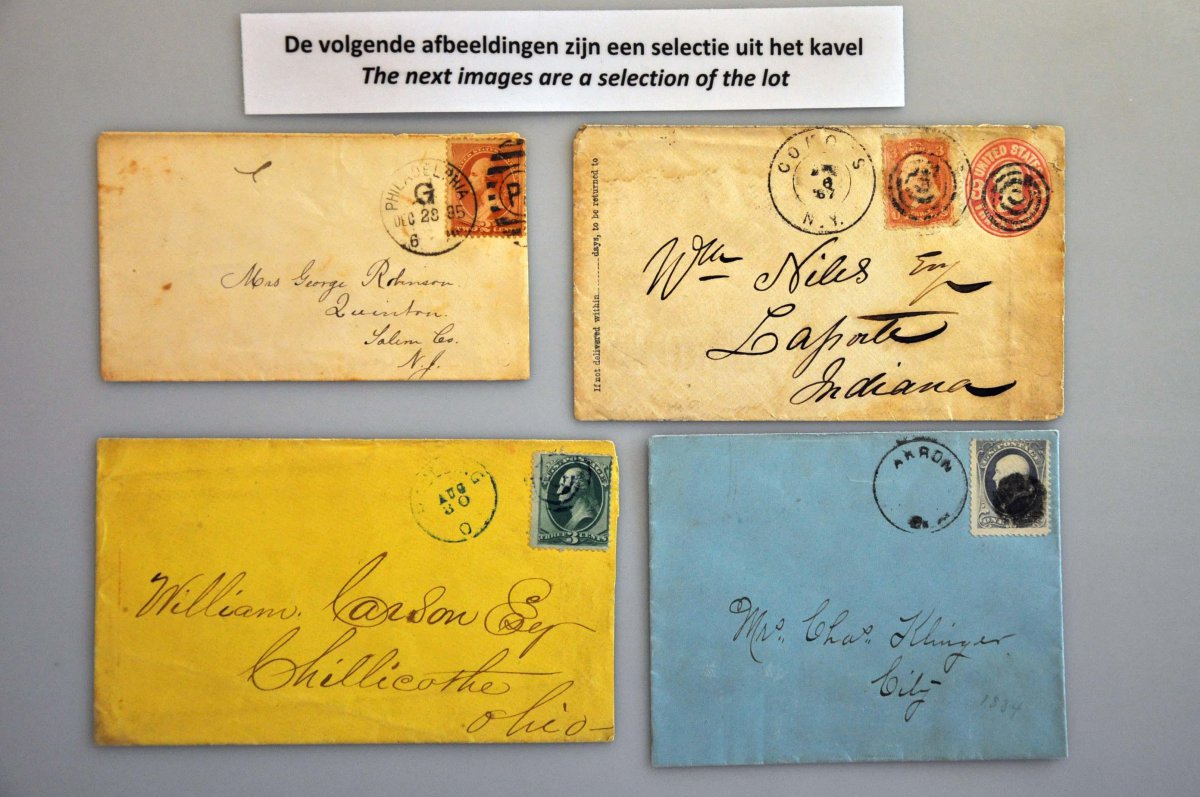 De volgende afbeeldingen zijn een selectie uit het kavel
The next images are a selection of the lot
PHILADELPHIA
G
DEC 28 85
6
Mrs George Robinson
Quinton
Salem Co.
N.J.
If not delivered within ........ days, to be returned to
N.Y.
UNITED STATES
Wm Niles Esq
Laporte
Indiana
AUG
30
O
THREE 3 CENTS
William. Carson Esq
Chillicothe
Ohio
AKRON
U.S. POSTAGE
Mrs. Chas. Klinger
City
1884